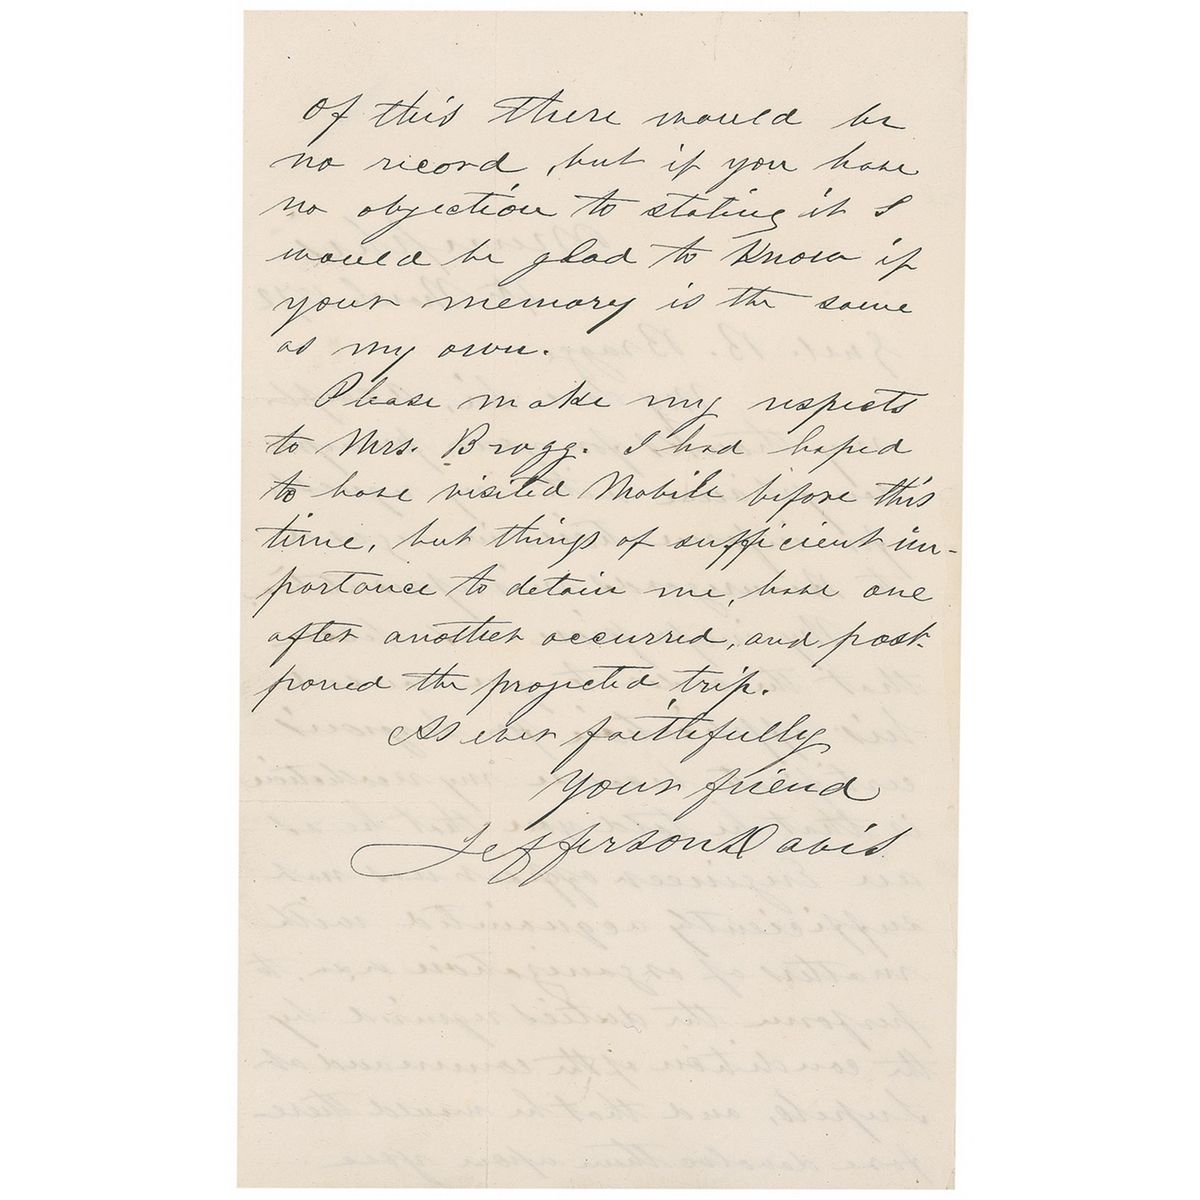 Of this there would be
no record, but if you have
no objection to stating it I
would be glad to know if
your memory is the same
as my own.
Please make my respects
to Mrs. Bragg. I had hoped
to have visited Mobile before this
time, but things of sufficient im-
portance to detain me, have one
after another occurred, and post-
poned the projected trip.
As ever faithfully
Your friend
Jefferson Davis